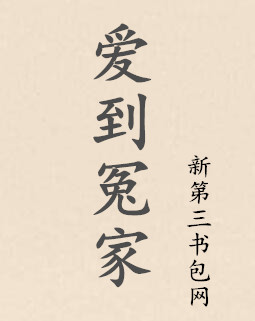 爱到冤家
新第三书包网